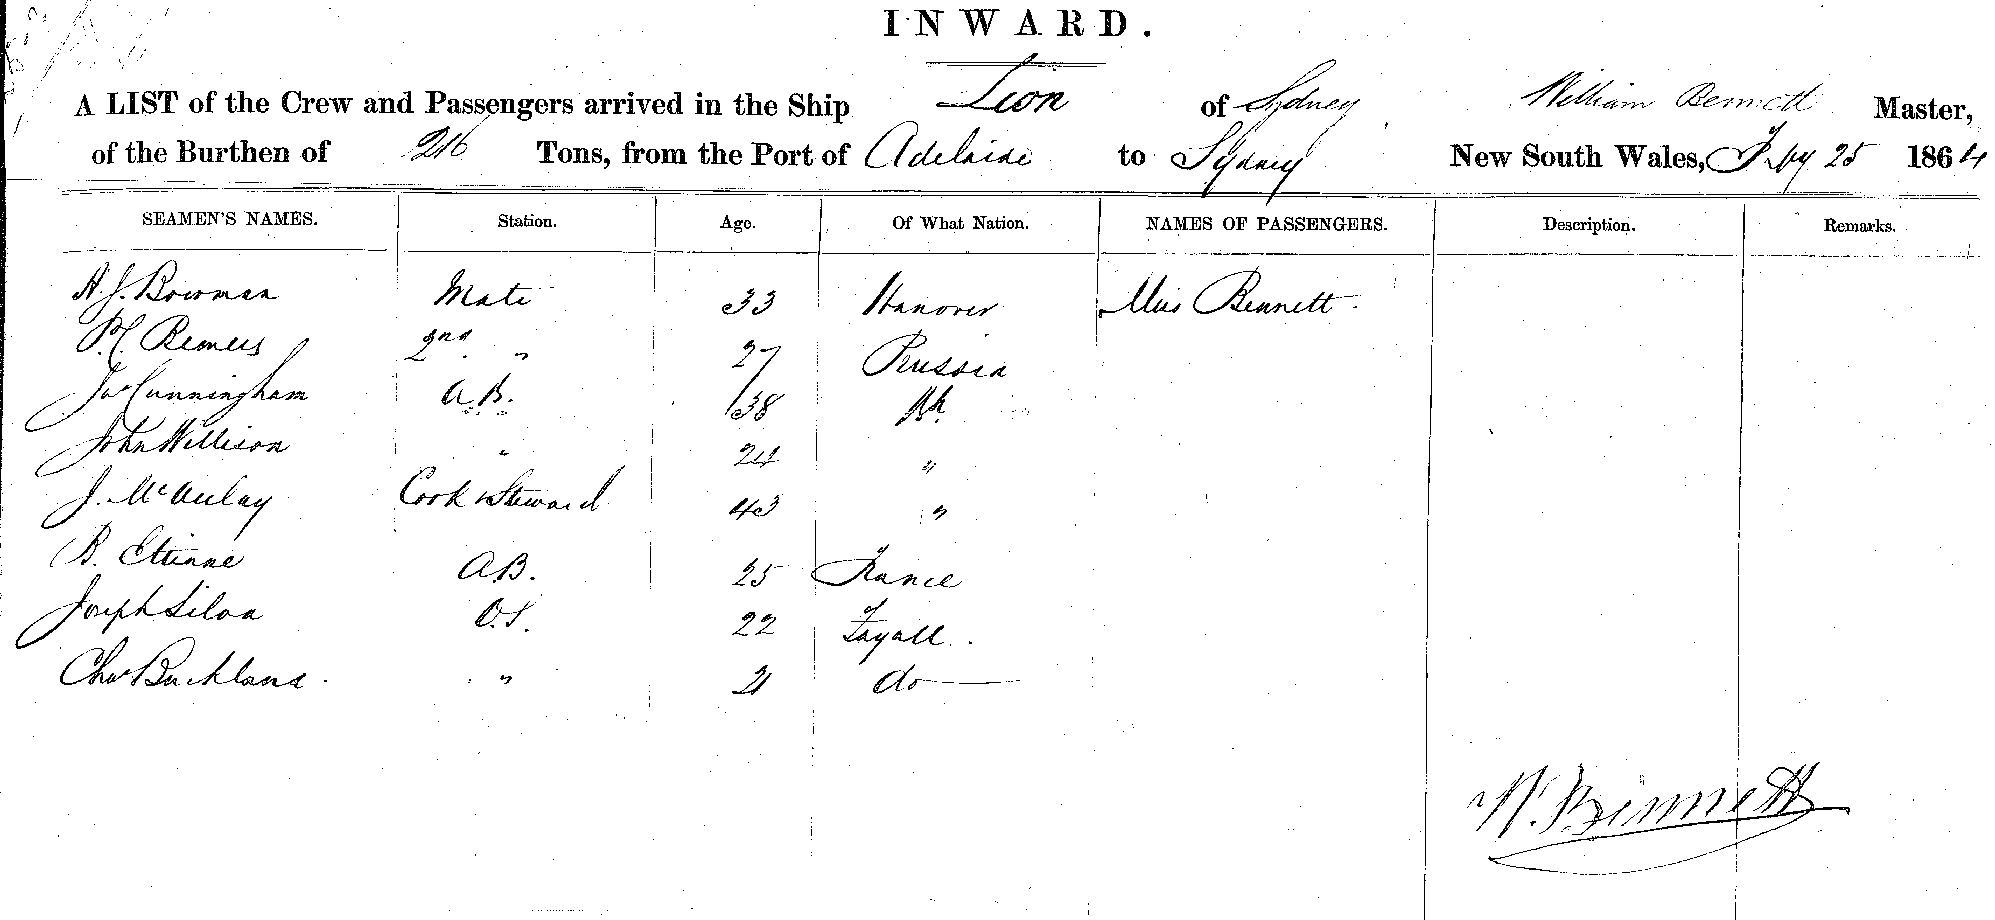 INWARD.
A LIST of the Crew and Passengers arrived in the Ship Lion of Sydney William Bennett Master,
of the Burthen of 216 Tons, from the Port of Adelaide to Sydney New South Wales, Feby 25 1864
SEAMEN'S NAMES. Station. Age. Of What Nation. NAMES OF PASSENGERS. Description. Remarks.
Bowman Mate 33 Hanover Miss Bennett
2nd " 27 Prussia
Jas Cunningham A.B. 38 Bh
John Willison " 24 "
J. McAulay Cook & Steward 43 "
B. Etienne A.B. 25 France
Joseph Silva O.S. 22 Fayall
Chas Buckland " 21 do
W. Bennett